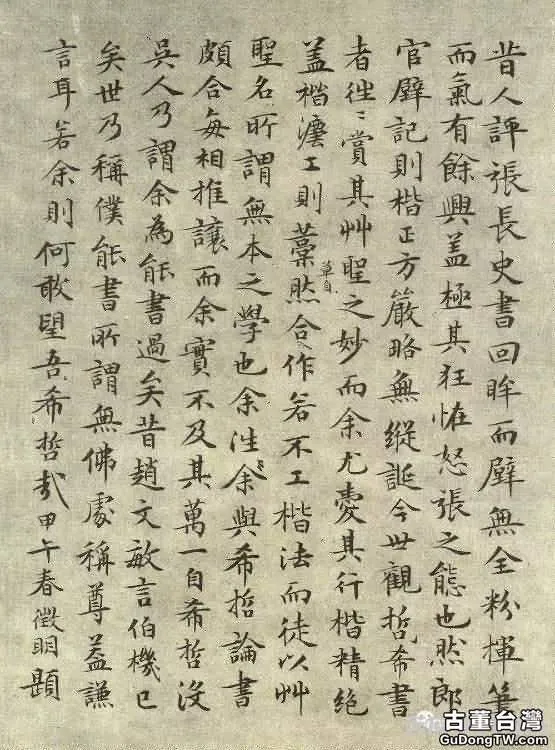 昔人評張長史書回眸而壁無全粉揮筆
而氣有餘興盖極其狂怪怒張之態也然郎
官壁記則楷正方嚴略無縱誕今世觀哲希書
者徃〻賞其艸聖之妙而余尤愛其行楷精絕
盖楷灋工則藁然合作若不工楷法而徒以艸
草自
聖名所謂無本之學也余徃余與希哲論書
頗合每相推讓而余實不及其萬一自希哲沒
吳人乃謂余為能書過矣昔趙文敏言伯機已
矣世乃稱僕能書所謂無佛處稱尊盖謙
言耳若余則何敢望吾希哲哉甲午春徵明題
古董台灣
GuDongTW.com